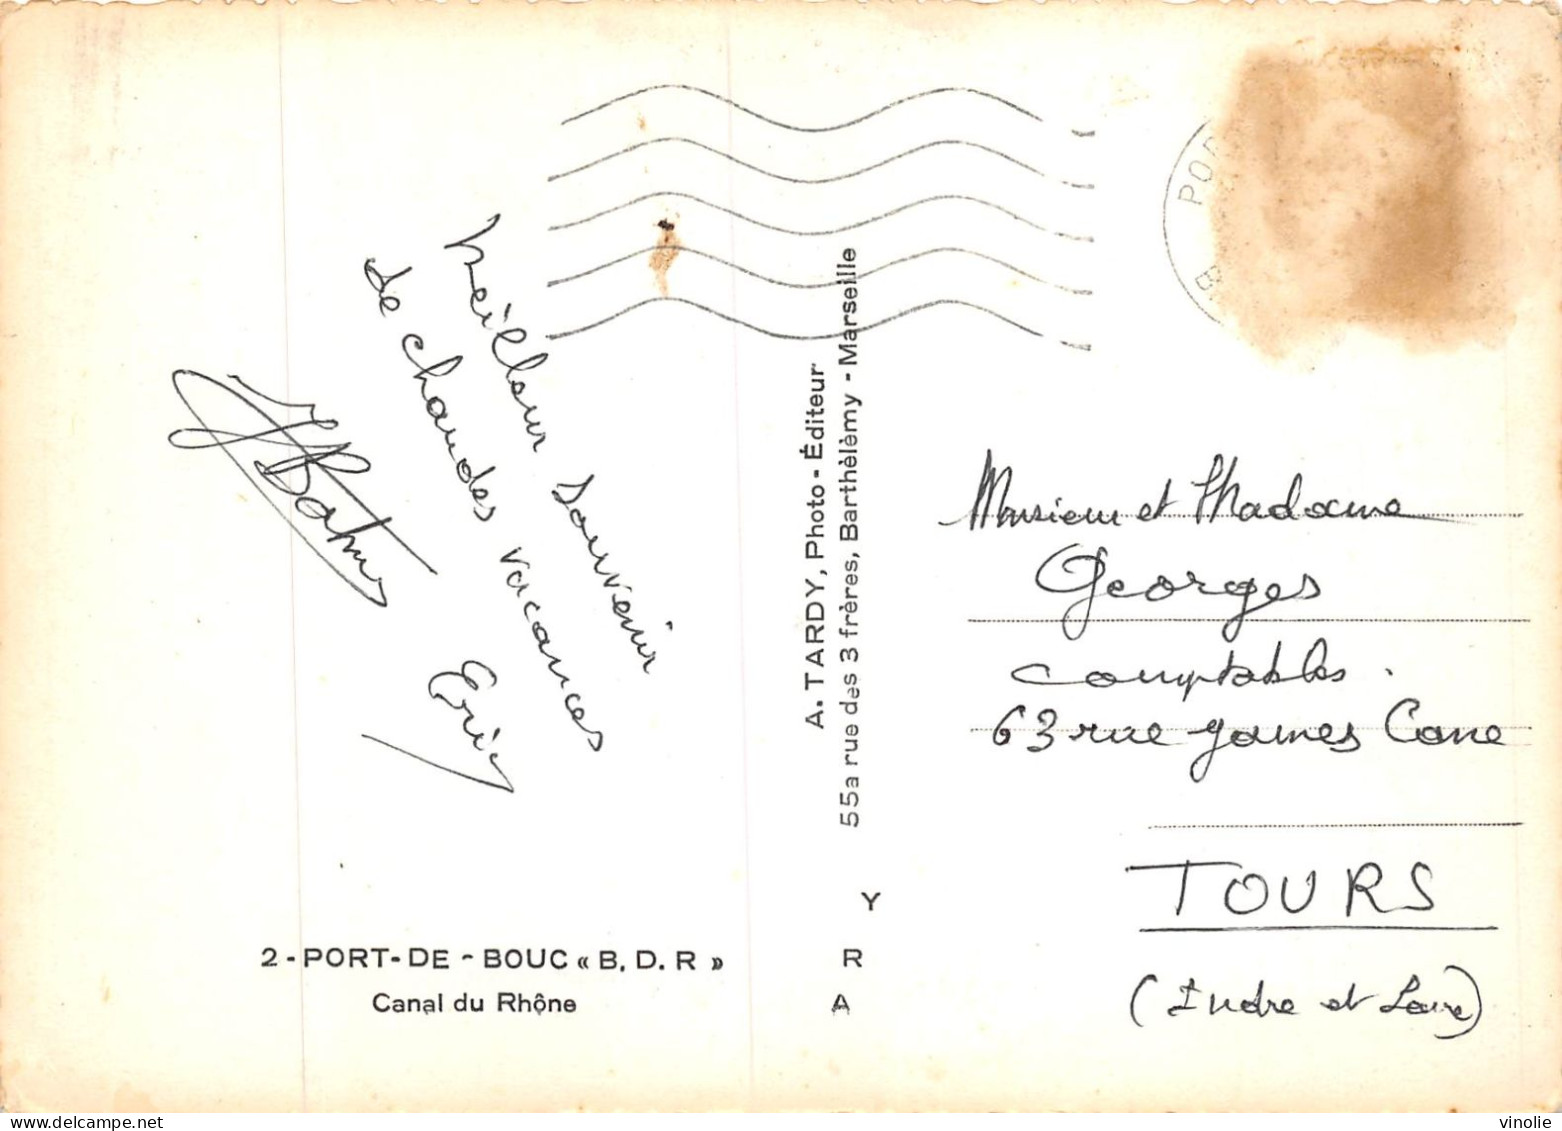 Meilleur Souvenir
de chaudes vacances
Eric
A. TARDY, Photo-Éditeur
55a rue des 3 frères, Barthèlèmy - Marseille
Y
R
A
POR
B
Monsieur et Madame
Georges
Comptables.
63 rue James Cane
TOURS
(Indre et Loire)
2-PORT-DE-BOUC « B. D. R »
Canal du Rhône
vinolie